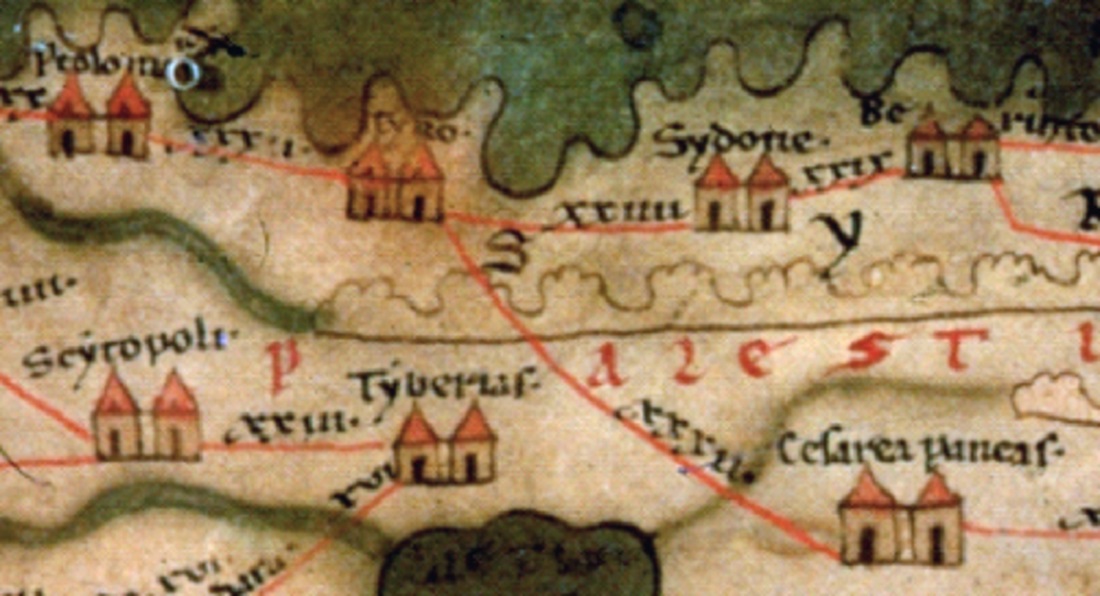 Ptolomao
xx
Tyro.
Sydone.
Be rinto
xxiiii
xxix
S
y
R
iiii.
Scytopoli.
P A l e S T I
Tyberias.
xxiii.
cxxxii.
Cesarea paneas.
xvi
xvi.